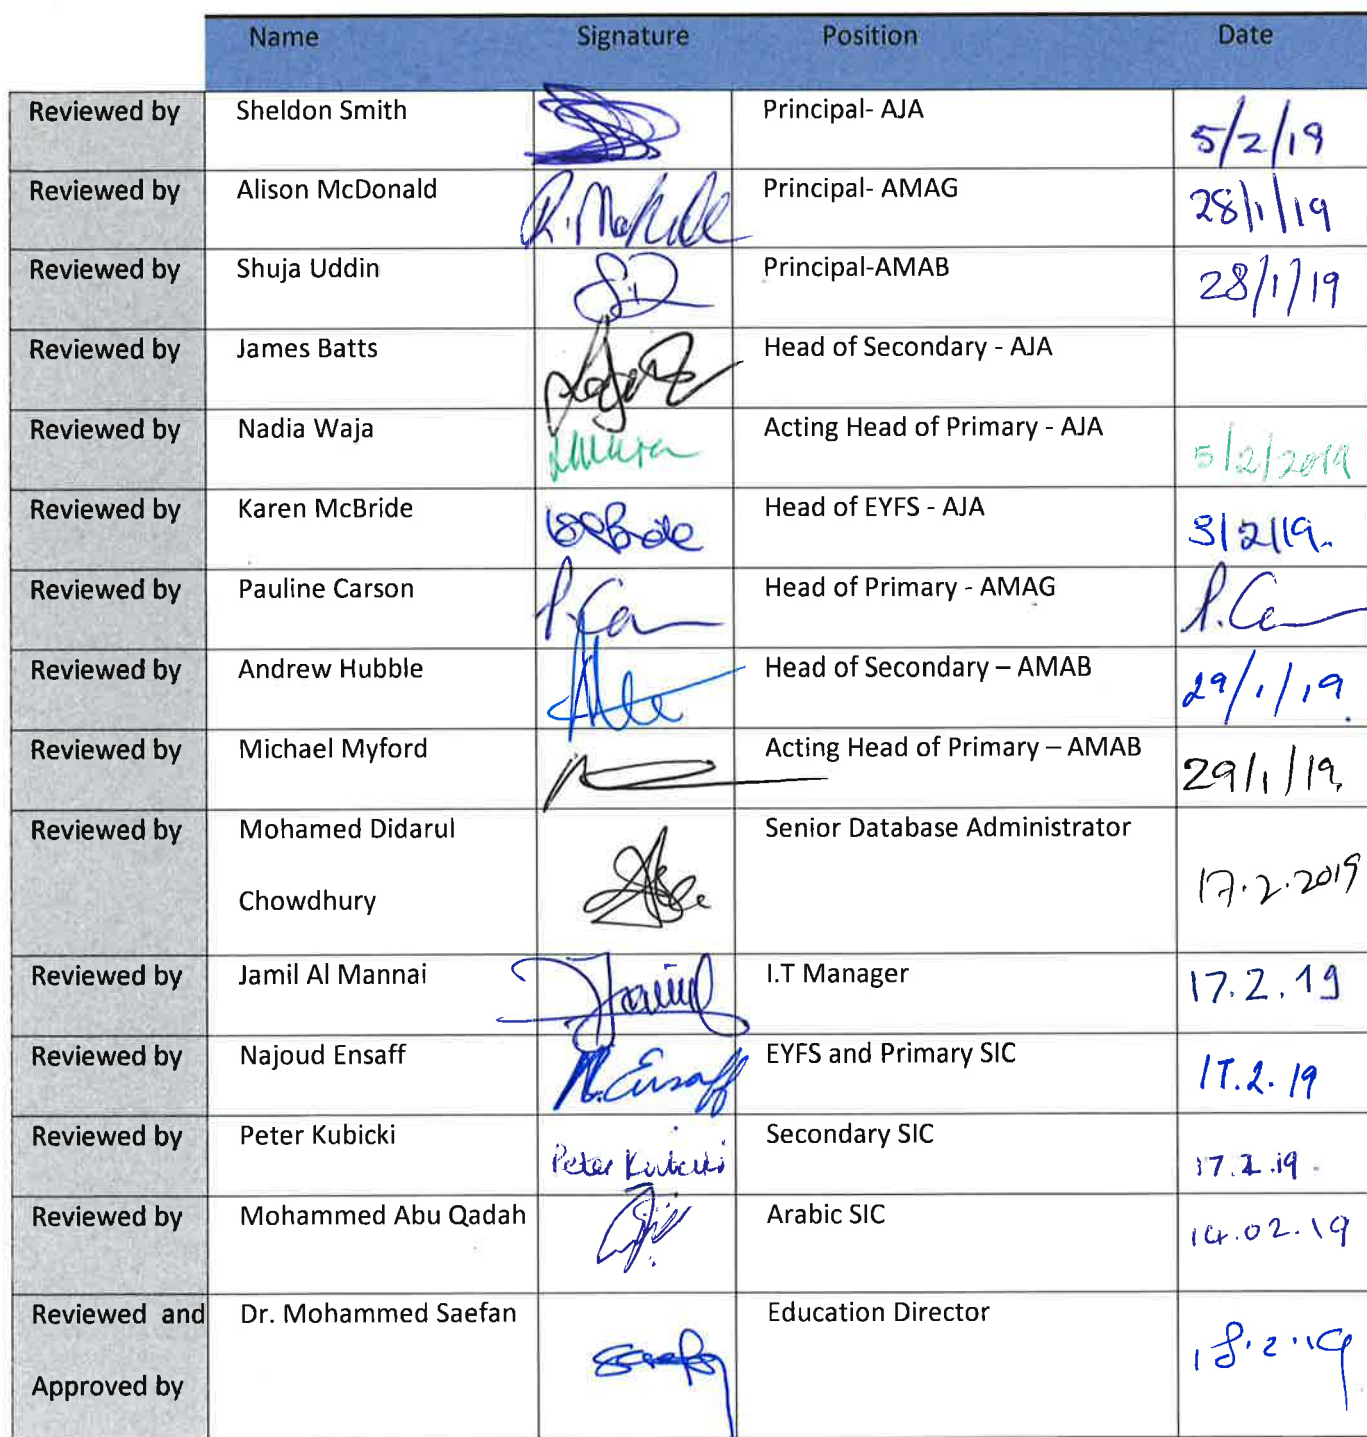 Name Signature Position Date
Reviewed by Sheldon Smith Principal- AJA 5/2/19
Reviewed by Alison McDonald Principal- AMAG 28/1/19
Reviewed by Shuja Uddin Principal-AMAB 28/1/19
Reviewed by James Batts Head of Secondary - AJA
Reviewed by Nadia Waja Acting Head of Primary - AJA 5/2/2019
Reviewed by Karen McBride Head of EYFS - AJA 3/2/19.
Reviewed by Pauline Carson P.Ca Head of Primary - AMAG P.Ca
Reviewed by Andrew Hubble Head of Secondary – AMAB 29/1/19.
Reviewed by Michael Myford Acting Head of Primary – AMAB 29/1/19
Reviewed by Mohamed Didarul Senior Database Administrator
Chowdhury 17.2.2019
Reviewed by Jamil Al Mannai Jamil I.T Manager 17.2.19
Reviewed by Najoud Ensaff N.Ensaff EYFS and Primary SIC 17.2.19
Reviewed by Peter Kubicki Peter Kubicki Secondary SIC 17.2.19.
Reviewed by Mohammed Abu Qadah Arabic SIC 14.02.19
Reviewed and Dr. Mohammed Saefan Education Director
Approved by 18.2.19